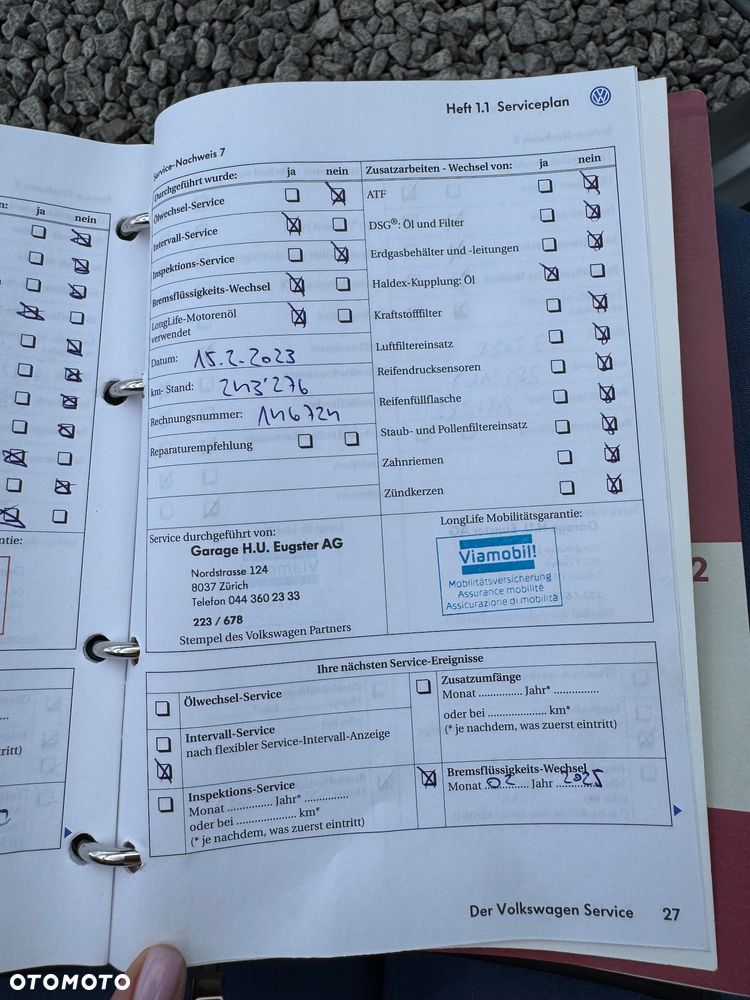 Heft 1.1 Serviceplan
Service-Nachweis 7
Durchgeführt wurde: ja nein
Ölwechsel-Service
Intervall-Service
Inspektions-Service
Bremsflüssigkeits-Wechsel
LongLife-Motorenöl
verwendet
Datum: 15.2.2023
km- Stand: 243'276
Rechnungsnummer: 146724
Reparaturempfehlung
Zusatzarbeiten - Wechsel von: ja nein
ATF
DSG®: Öl und Filter
Erdgasbehälter und -leitungen
Haldex-Kupplung: Öl
Kraftstofffilter
Luftfiltereinsatz
Reifendrucksensoren
Reifenfüllflasche
Staub- und Pollenfiltereinsatz
Zahnriemen
Zündkerzen
Service durchgeführt von:
Garage H.U. Eugster AG
Nordstrasse 124
8037 Zürich
Telefon 044 360 23 33
223 / 678
Stempel des Volkswagen Partners
LongLife Mobilitätsgarantie:
Viamobil!
Mobilitätsversicherung
Assurance mobilité
Assicurazione di mobilità
Ihre nächsten Service-Ereignisse
Ölwechsel-Service
Intervall-Service
nach flexibler Service-Intervall-Anzeige
Inspektions-Service
Monat .............. Jahr* ..............
oder bei .................... km*
(* je nachdem, was zuerst eintritt)
Zusatzumfänge
Monat .............. Jahr* ..............
oder bei .................... km*
(* je nachdem, was zuerst eintritt)
Bremsflüssigkeits-Wechsel
Monat 02 Jahr 2025
Der Volkswagen Service 27
ja nein
2
OTOMOTO